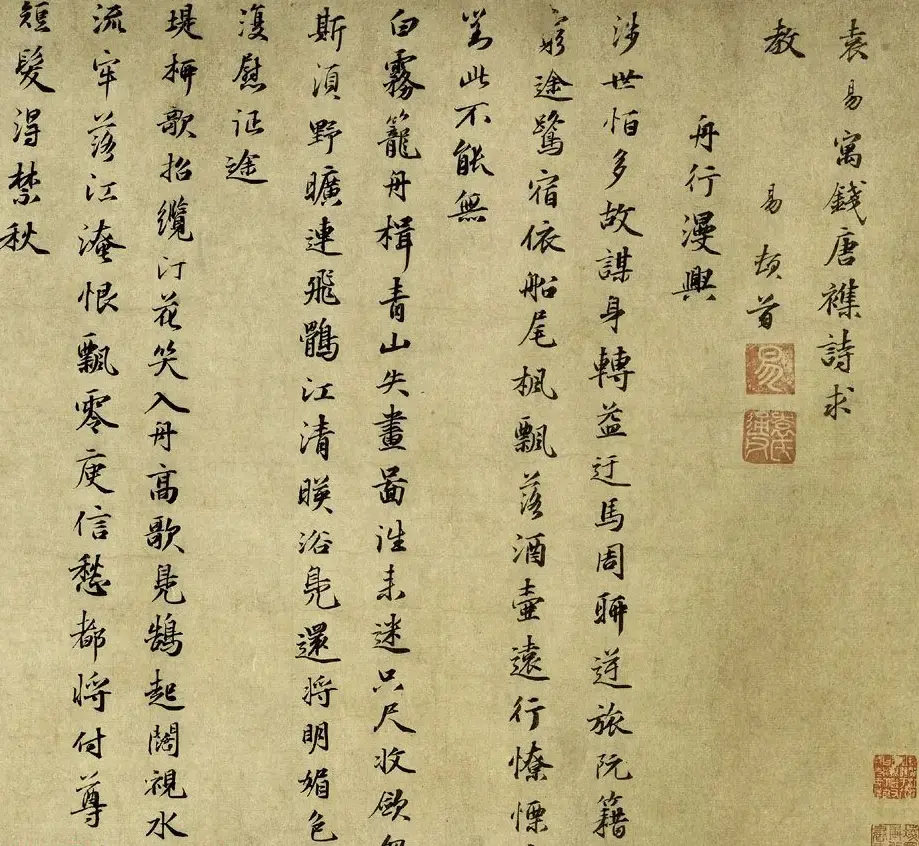 袁易寓錢唐襍詩求
教　易頓首
舟行漫興
涉世怕多故謀身轉益迂馬周聊逆旅阮籍
窮途鷺宿依船尾楓飄落酒壺遠行憭慄
對此不能無
白霧籠舟楫青山失畫啚往来迷只尺收歛
斯須野曠連飛鶻江清暎浴鳬還將明媚色
復慰征途
堤柳歌招纜汀花笑入舟高歌鳬鵠起闊視水
流牢落江淹恨飄零庾信愁都將付尊
短髮得禁秋
易
袁氏通父